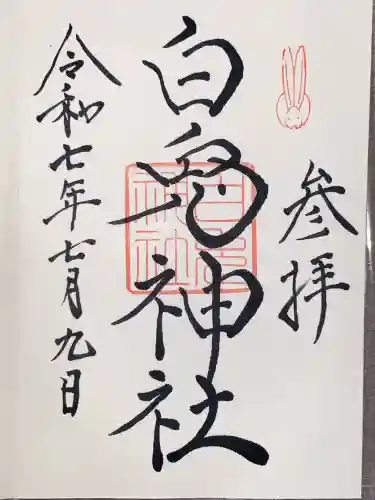 参拝
白兎神社
令和七年七月九日
白兎神社